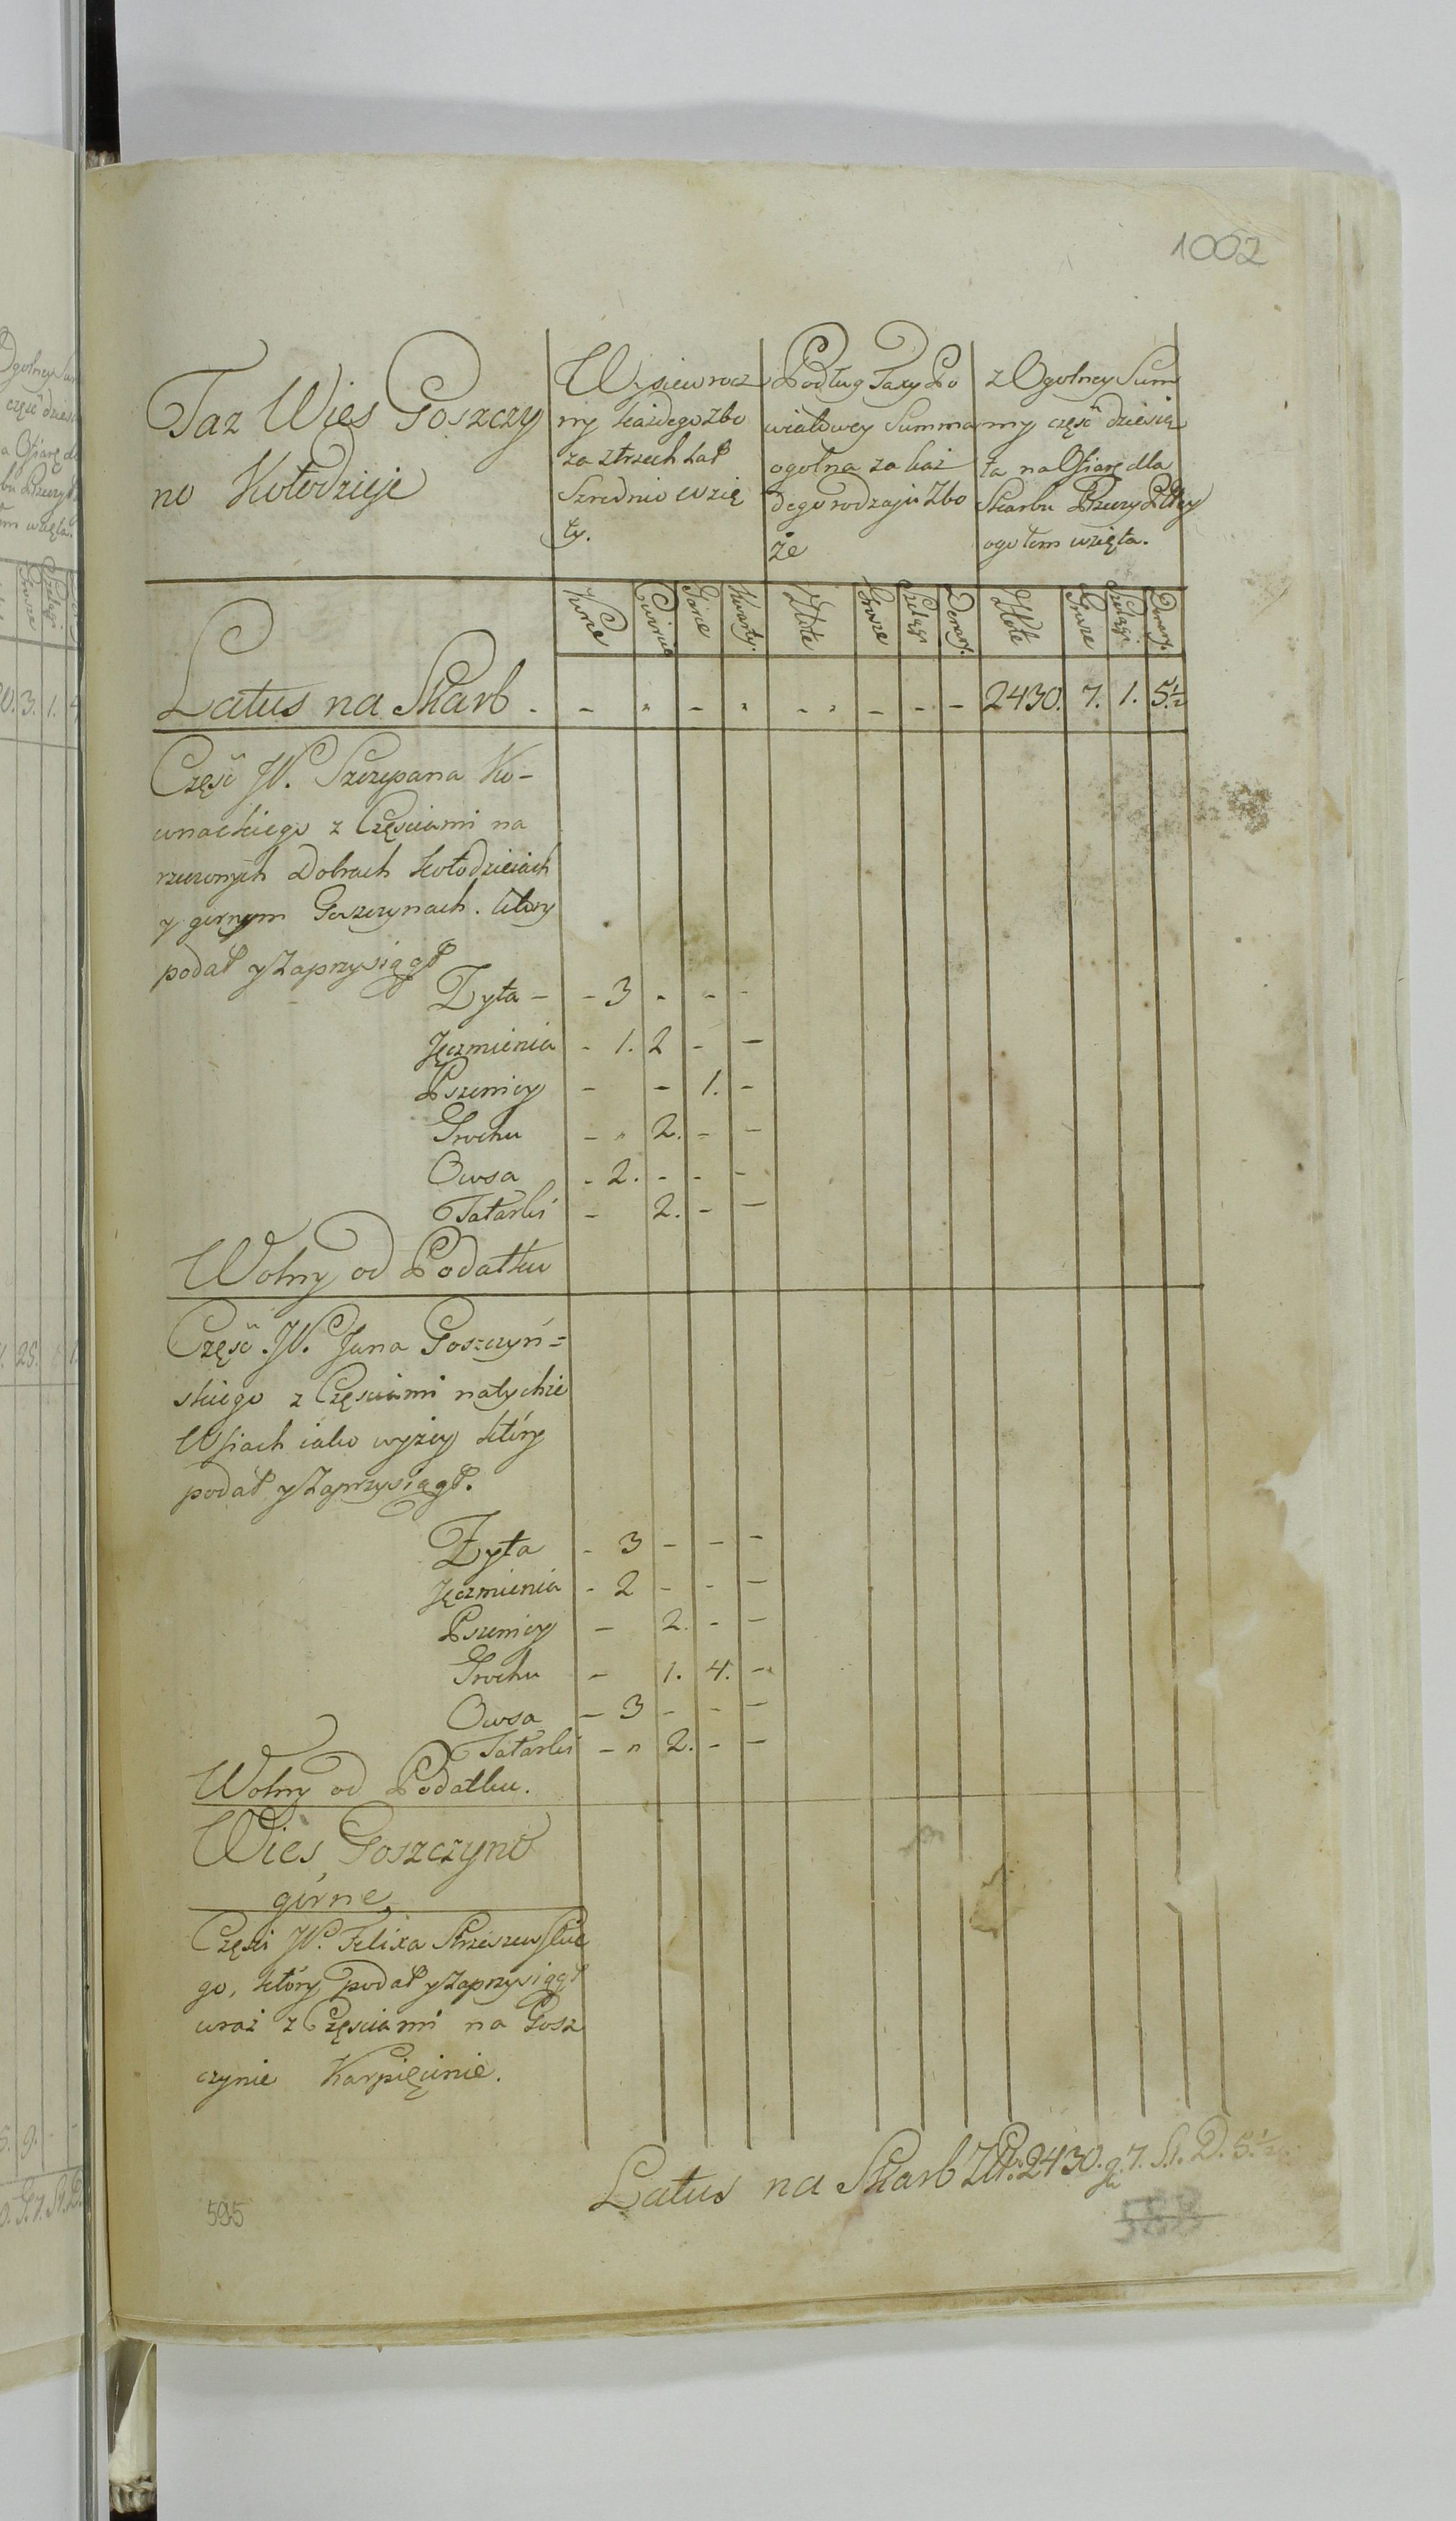 1002
Taz Wies Goszczy
no Kołodzieje
Wysiew rocz
ny każdego zbo
za z trzech Lat
Szrednio wzię
ty.
Podług Taxy Po
wiatowey Summa
ogolna za każ
dego rodzaju Zbo
że
z Ogolney Sum
my częsc dziesią
ta na Ofiarę dla
Skarbu Rzeczy Pltey
ogołem wzięta.
Korce Cwierci Garce Kwarty. Złote Grosze Szelągi Denary. Złote Grosze Szelągi Denary.
Latus na Skarb - - " - " - " - - - 2430. 7. 1. 5½
Częsc W. Szczepana Ko-
wnackiego z Częsciami na
rzeczonych Dobrach Kołodzieiach
y gornym Goszczynach. który
podał y Zaprzysiągł
Zyta - - 3 - - -
Jęczmienia - 1. 2 - -
Pszenicy - - 1. -
Grochu - " 2. - -
Owsa - 2. - - -
Tatarki - 2. - -
Wolny od Podatku
Częsc W. Jana Goszczyń=
skiego z Częsciami na tychże
Wsiach iako wyżey który
podał y Zaprzysiągł.
Zyta - 3 - - -
Jęczmienia - 2 - - -
Pszenicy - 2. - -
Grochu - 1. 4. -
Owsa - 3 - - -
Tatarki - " 2. - -
Wolny od Podatku.
Wies Goszczyno
górne
Częsci W. Felixa
go, który podał y Zaprzysiągł
wraz z Częsciami na Gosz
czynie Karpięcinie.
Latus na Skarb Złt. 2430. g. 7. S. 1. D. 5½
595
588